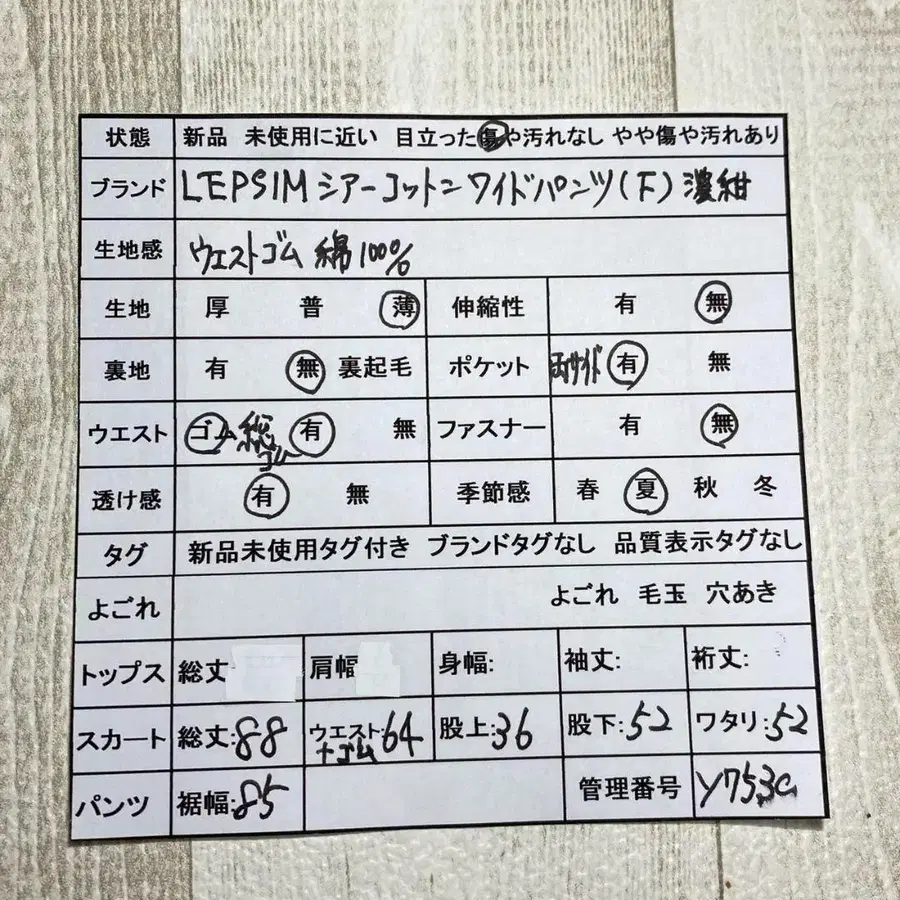 状態 新品 未使用に近い 目立った傷や汚れなし やや傷や汚れあり
ブランド LEPSIM シアーコットンワイドパンツ(F) 濃紺
生地感 ウエストゴム 綿100%
生地 厚 普 薄 伸縮性 有 無
裏地 有 無 裏起毛 ポケット 両サイド 有 無
ウエスト ゴム 総ゴム 有 無 ファスナー 有 無
透け感 有 無 季節感 春 夏 秋 冬
タグ 新品未使用タグ付き ブランドタグなし 品質表示タグなし
よごれ よごれ 毛玉 穴あき
トップス 総丈 肩幅 身幅: 袖丈: 裄丈:
スカート 総丈:88 ウエスト+ゴム 64 股上:36 股下:52 ワタリ:52
パンツ 裾幅:85 管理番号